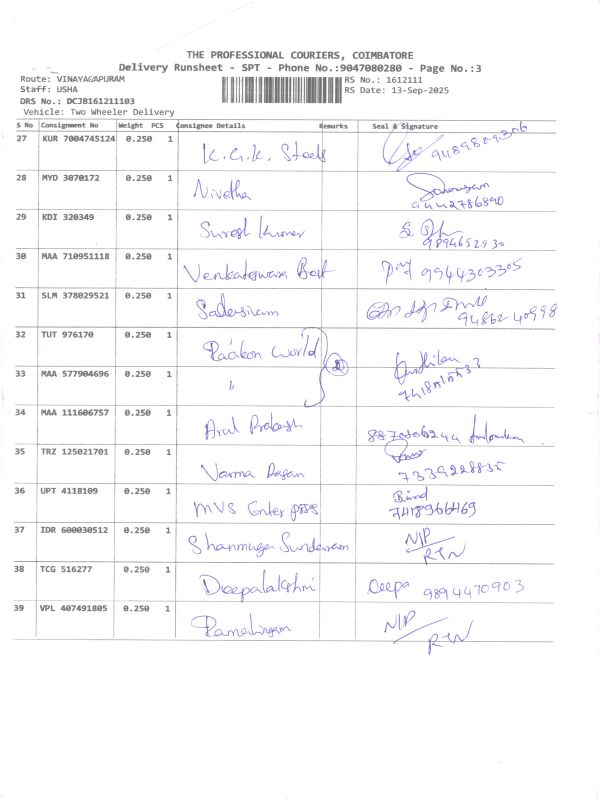 THE PROFESSIONAL COURIERS, COIMBATORE
Delivery Runsheet - SPT - Phone No.:9047080280 - Page No.:3
Route: VINAYAGAPURAM RS No.: 1612111
Staff: USHA RS Date: 13-Sep-2025
DRS No.: DCJB161211103
Vehicle: Two Wheeler Delivery
S No Consignment No Weight PCS Consignee Details Remarks Seal & Signature
27 KUR 7004745124 0.250 1 K.G.K. Steels 9489809306
28 MYD 3070172 0.250 1 Nivetha 9442786890
29 KDI 320349 0.250 1 Suresh Kumar 9894652930
30 MAA 710951118 0.250 1 Venkateswara Boat 9944303305
31 SLM 378029521 0.250 1 94862 40998
32 TUT 976170 0.250 1 world 2
33 MAA 577904696 0.250 1 "
34 MAA 111606757 0.250 1 Arul Prakash
35 TRZ 125021701 0.250 1 Varma 7339228835
36 UPT 4118109 0.250 1 MVS Enter prises 7418966469
37 IDR 600030512 0.250 1 Shanmuga Sunderam N/P
RTN
38 TCG 516277 0.250 1 Deepalakshmi Deepa 9894470903
39 VPL 407491805 0.250 1 Ramalingam N/P
RTN